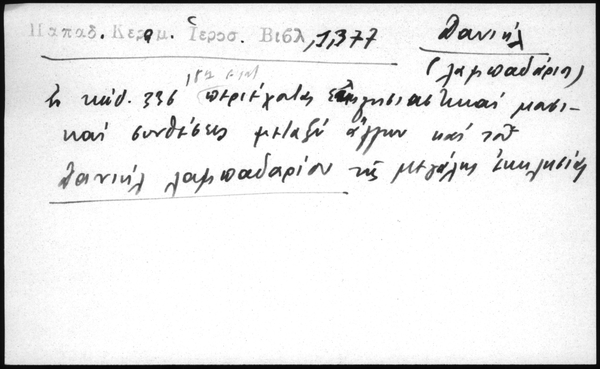 Παπαδ. Κεραμ. Ἱεροσ. Βιβλ, 1,377
Δανιήλ
(λαμπαδάριος)
ἐν κώδ. 336 περιέχονται ἐκκλησιαστικαί μουσι-
καί συνθέσεις μεταξύ ἄλλων καί τοῦ
Δανιήλ λαμπαδαρίου τῆς μεγάλης ἐκκλησίας